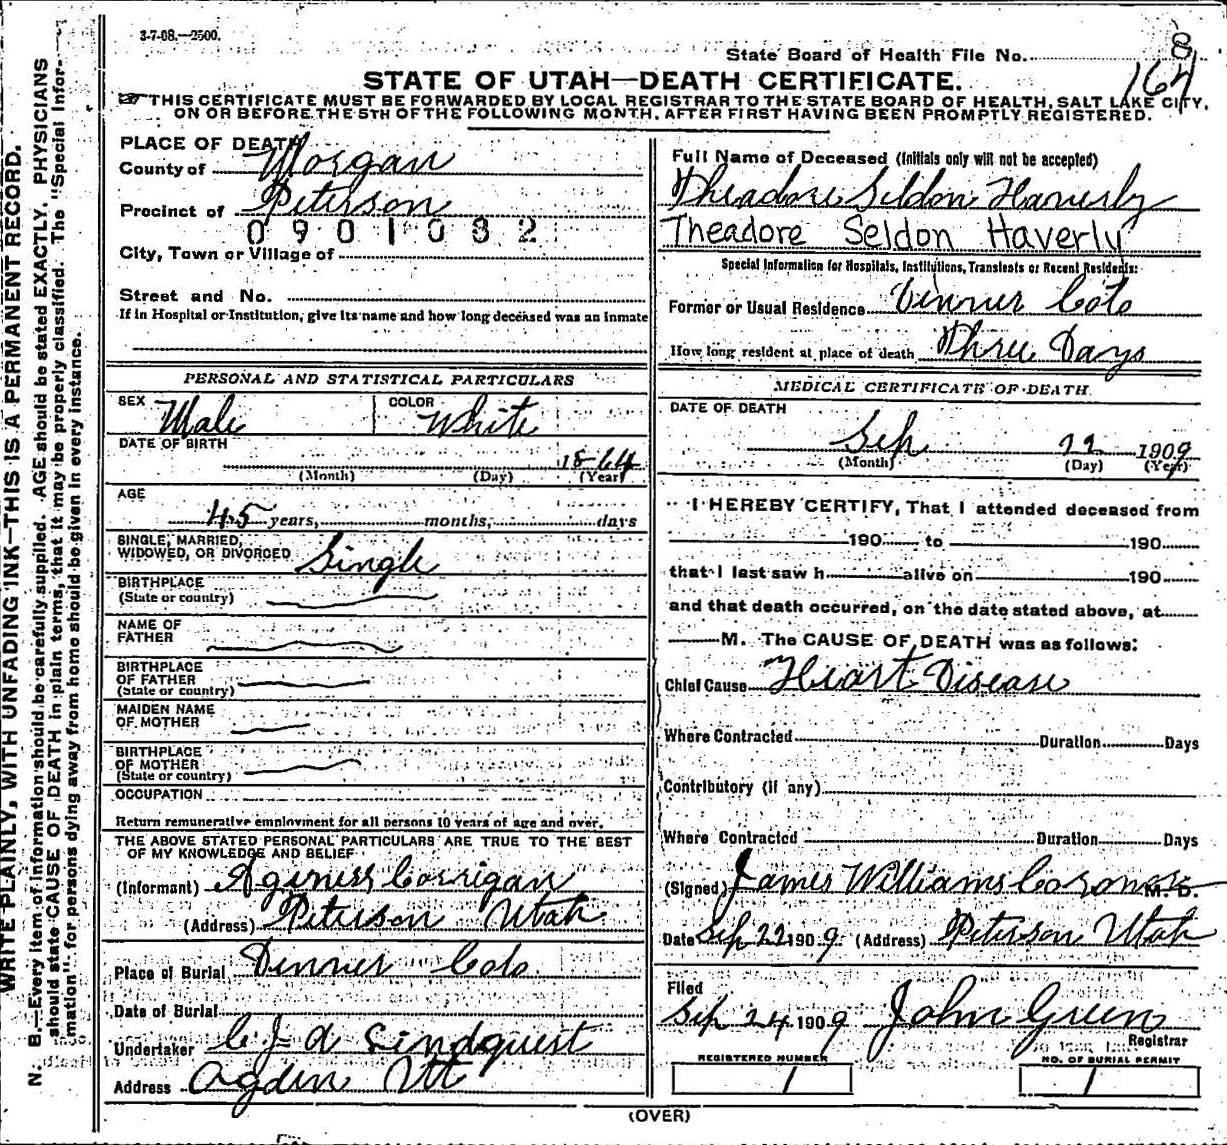 3-7-08.—2500.
State Board of Health File No. 8
164
STATE OF UTAH—DEATH CERTIFICATE.
THIS CERTIFICATE MUST BE FORWARDED BY LOCAL REGISTRAR TO THE STATE BOARD OF HEALTH, SALT LAKE CITY,
ON OR BEFORE THE 5TH OF THE FOLLOWING MONTH, AFTER FIRST HAVING BEEN PROMPTLY REGISTERED.
WRITE PLAINLY, WITH UNFADING INK—THIS IS A PERMANENT RECORD.
N. B.—Every item of information should be carefully supplied. AGE should be stated EXACTLY. PHYSICIANS
should state CAUSE OF DEATH in plain terms, that it may be properly classified. The "Special Infor-
mation" for persons dying away from home should be given in every instance.
PLACE OF DEATH
County of Morgan
Precinct of Peterson
0901082
City, Town or Village of
Street and No.
If in Hospital or Institution, give its name and how long deceased was an inmate
PERSONAL AND STATISTICAL PARTICULARS
SEX Male COLOR White
DATE OF BIRTH 1864
(Month) (Day) (Year)
AGE
45 years, months, days
SINGLE, MARRIED,
WIDOWED, OR DIVORCED Single
BIRTHPLACE
(State or country)
NAME OF
FATHER
BIRTHPLACE
OF FATHER
(State or country)
MAIDEN NAME
OF MOTHER
BIRTHPLACE
OF MOTHER
(State or country)
OCCUPATION
Return remunerative employment for all persons 10 years of age and over.
THE ABOVE STATED PERSONAL PARTICULARS ARE TRUE TO THE BEST
OF MY KNOWLEDGE AND BELIEF
(Informant) Aginess Corrigan
(Address) Peterson Utah
Place of Burial Dinner Colo
Date of Burial
Undertaker C J A Lindquist
Address Ogden Ut
Full Name of Deceased (Initials only will not be accepted)
Theadore Seldon Haverly
Theadore Seldon Haverly
Special Information for Hospitals, Institutions, Transients or Recent Residents:
Former or Usual Residence Dinner Colo
How long resident at place of death Three Days
MEDICAL CERTIFICATE OF DEATH
DATE OF DEATH
Sep 22 1909
(Month) (Day) (Year)
I HEREBY CERTIFY, That I attended deceased from
190 to 190
that I last saw h alive on 190
and that death occurred, on the date stated above, at
M. The CAUSE OF DEATH was as follows:
Chief Cause Heart Disease
Where Contracted Duration Days
Contributory (if any)
Where Contracted Duration Days
(Signed) James Williams Coroner M. D.
Date Sep 22 1909 (Address) Peterson Utah
Filed
Sep 24 1909 John Green
Registrar
REGISTERED NUMBER
1
NO. OF BURIAL PERMIT
1
(OVER)